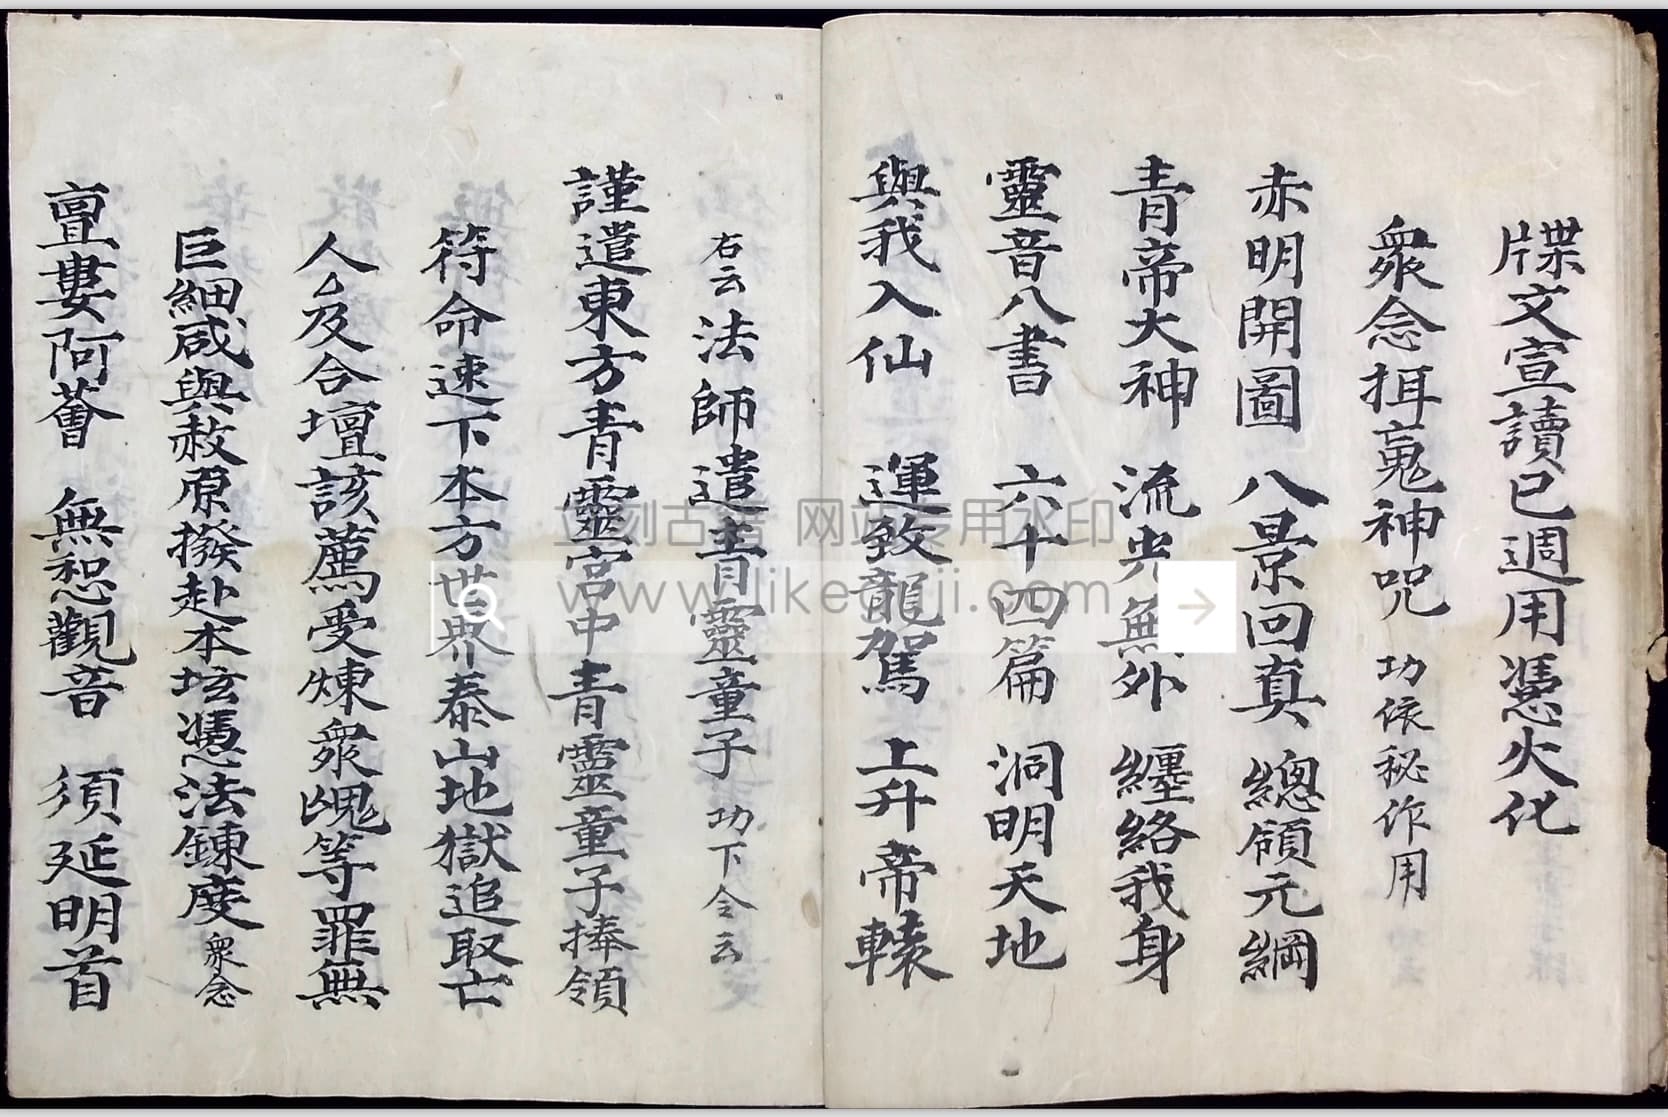 牒文宣讀已週用憑火化
衆念揖䰟神咒 功依秘作用
赤明開圖 八景回真 總領元綱
青帝大神 流光無外 纏絡我身
靈音八書 六十四篇 洞明天地
與我入仙 運致龍駕 上升帝轅
右云法師遣青靈童子 功下令云
謹遣東方青靈宮中青靈童子捧領
符命速下本方世界泰山地獄追取亡
人and及合壇該薦受煉衆䰟等罪無
巨細咸與赦原撥赴本坛憑法鍊度 衆念
亶婁阿薈 無惒觀音 須延明首
立刻古籍 网站专用水印
www.likeguji.com